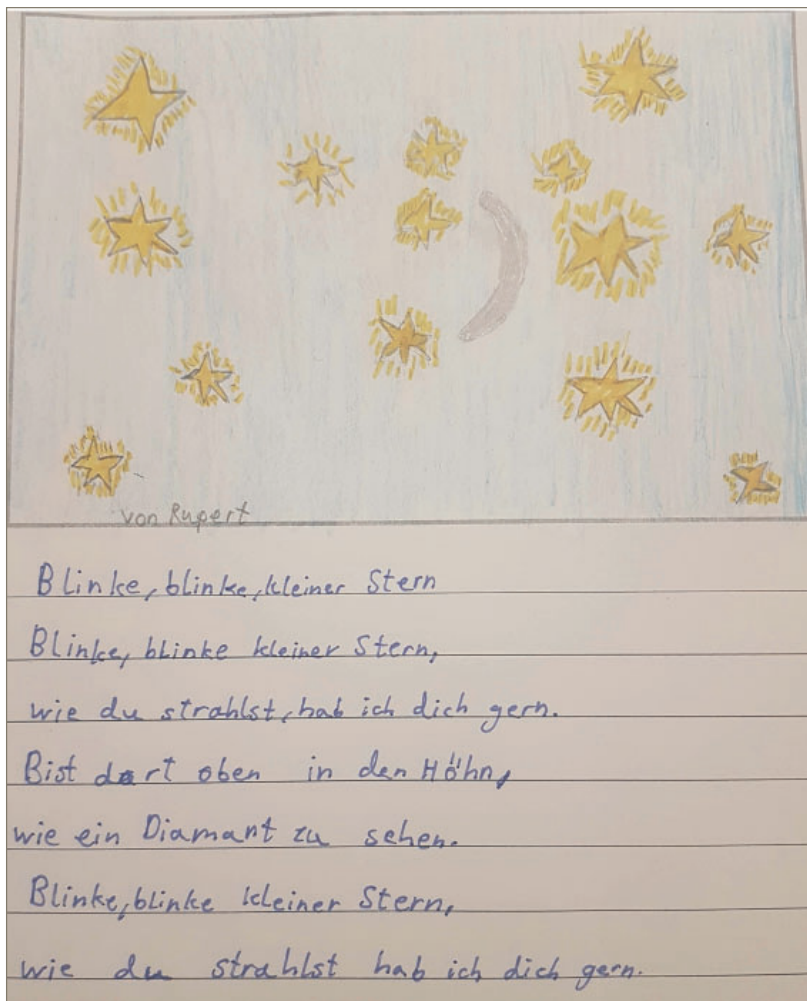 von Rupert
Blinke, blinke, kleiner Stern
Blinke, blinke kleiner Stern,
wie du strahlst, hab ich dich gern.
Bist dort oben in den Höhn,
wie ein Diamant zu sehen.
Blinke, blinke kleiner Stern,
wie du strahlst hab ich dich gern.